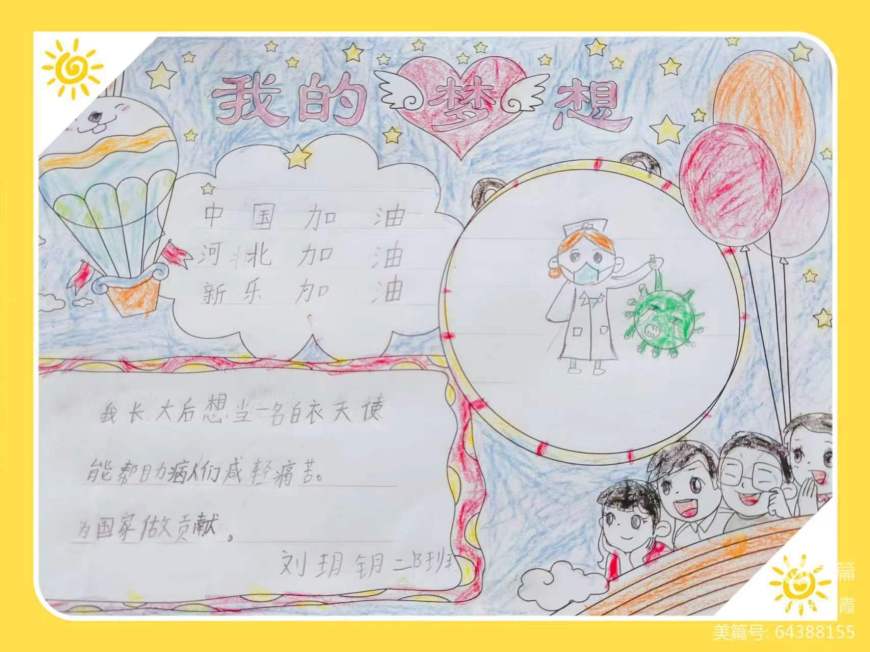 我的梦想
中国加油
河北加油
新乐加油
我长大后想当一名白衣天使
能帮助病人们减轻痛苦。
为国家做贡献。
刘玥钥 二B班
篇
霞
美篇号: 64388155